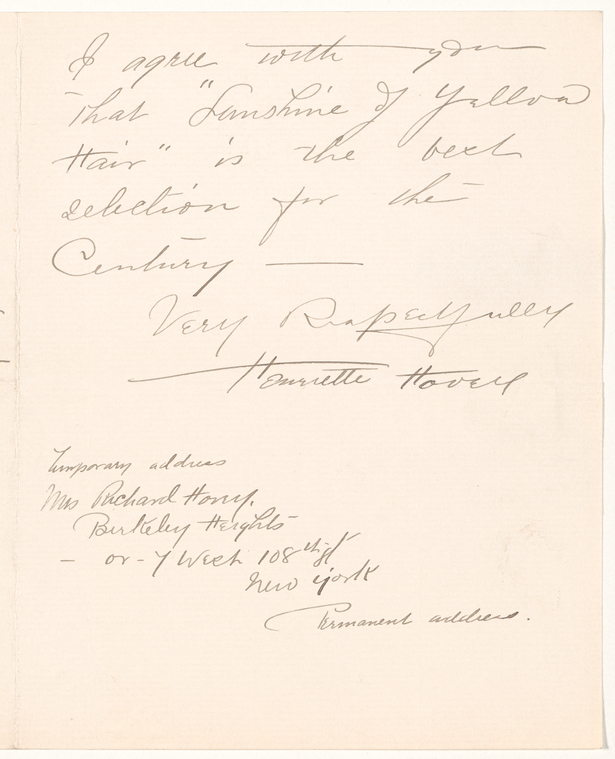 I agree with you
that "Sunshine of Yellow
Hair" is the best
selection for the
Century —
Very Respectfully
Henriette Hovey
Temporary address
Mrs Richard Hovey.
Berkeley Heights
— or - 7 West 108th St
New York
Permanent address.